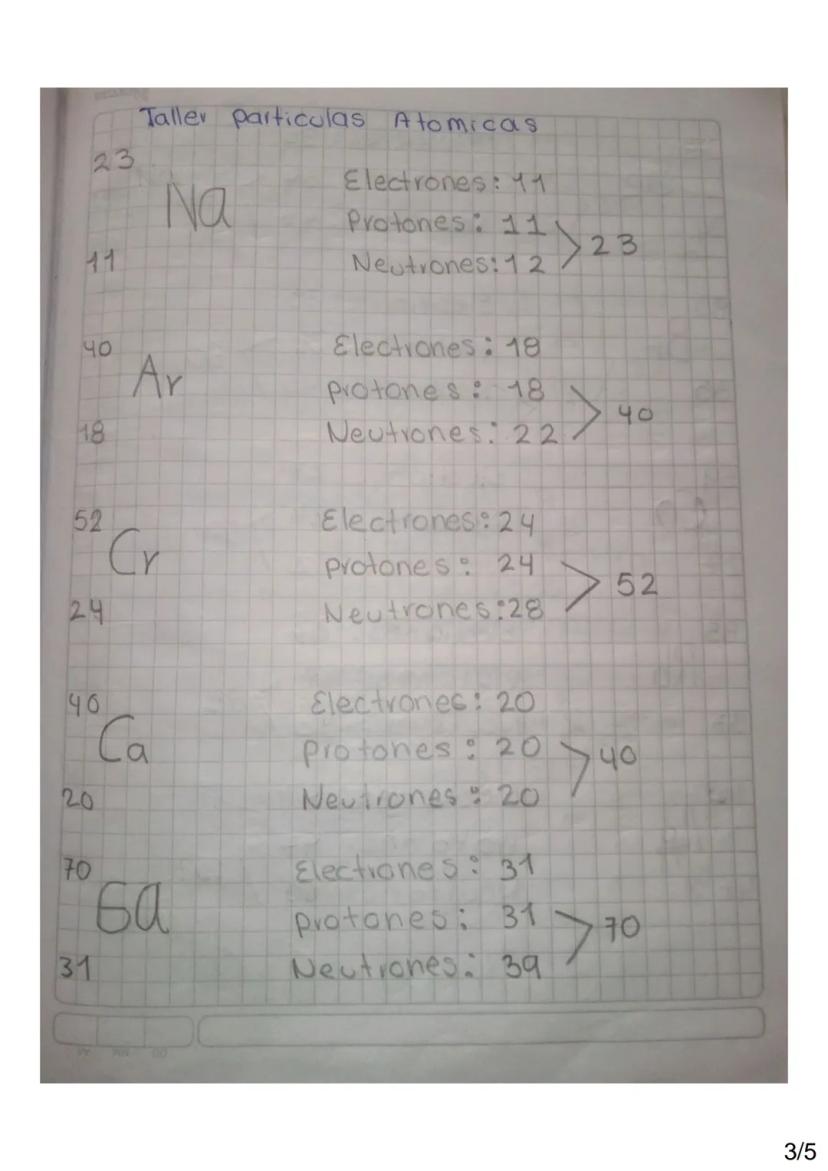 Taller particulas Atomicas
23
Na
11
Electrones: 11
Protones: 11
Neutrones: 12
> 23
40
Ar
18
Electrones: 18
protones: 18
Neutrones: 22
> 40
52
Cr
24
Electrones: 24
protones: 24
Neutrones: 28
> 52
40
Ca
20
Electrones: 20
protones: 20
Neutrones: 20
> 40
70
Ga
31
Electrones: 31
protones: 31
Neutrones: 39
> 70
3/5